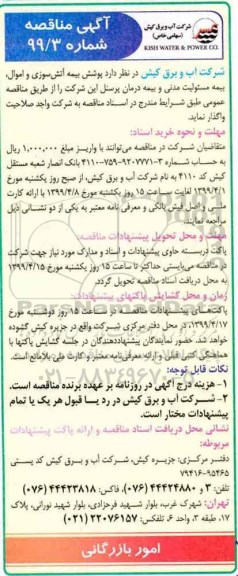 آگهی مناقصه
شماره ۹۹/۳
شرکت آب و برق کیش
(سهامی خاص)
KISH WATER & POWER CO.
شرکت آب و برق کیش در نظر دارد پوشش بیمه آتش‌سوزی و اموال،
بیمه مسئولیت مدنی و بیمه درمان پرسنل این شرکت را از طریق مناقصه
عمومی طبق شرایط مندرج در اسناد مناقصه به شرکت واجد صلاحیت
واگذار نماید.
مهلت و نحوه خرید اسناد:
متقاضیان شرکت در مناقصه می‌توانند با واریز مبلغ ۱,۰۰۰,۰۰۰ ریال
به حساب شماره ۳-۹۲۰۷۷۷۱-۷۵۹-۴۱۱۰ بانک انصار شعبه مستقل
کیش کد ۴۱۱۰ به نام شرکت آب و برق کیش، از صبح روز یکشنبه مورخ
۱۳۹۹/۴/۱ لغایت ساعت ۱۵ روز یکشنبه مورخ ۱۳۹۹/۴/۸ با ارائه کارت
ملی و اصل فیش بانکی و معرفی نامه معتبر به یکی از دو نشانی ذیل
مراجعه نمایند.
مهلت و محل تحویل پیشنهادات مناقصه:
پاکت دربسته حاوی پیشنهادات و اسناد و مدارک مورد نیاز جهت شرکت
در مناقصه می‌بایستی حداکثر تا ساعت ۱۵ روز یکشنبه مورخ ۱۳۹۹/۴/۱۵
به محل دریافت اسناد مناقصه تحویل گردد.
زمان و محل گشایش پاکتهای پیشنهادات:
پاکت‌های پیشنهادات مناقصه در ساعت ۱۵ روز دوشنبه مورخ
۱۳۹۹/۴/۱۷، در محل دفتر مرکزی شرکت واقع در جزیره کیش گشوده
خواهد شد. حضور نمایندگان پیشنهاددهندگان در جلسه گشایش پاکتها با
هماهنگی کتبی قبلی و ارائه معرفی‌نامه معتبر و کارت ملی بلامانع است.
نکات قابل توجه:
۱- هزینه درج آگهی در روزنامه بر عهده برنده مناقصه است.
۲- شرکت آب و برق کیش در رد یا قبول هر یک یا تمام
پیشنهادات مختار است.
نشانی محل دریافت اسناد مناقصه و ارائه پاکت پیشنهادات
مربوطه:
دفتر مرکزی: جزیره کیش، شرکت آب و برق کیش کد پستی
۷۹۴۱۶-۹۵۴۶۵
تلفن: ۳ و ۴۴۴۲۴۸۸۰ (۰۷۶)، فاکس: ۴۴۴۲۳۸۱۸ (۰۷۶)
تهران: شهرک غرب، بلوار شهید فرحزادی، بلوار شهید نورانی، پلاک
۱۷، طبقه ۳، واحد ۶، تلفکس: ۲۲۰۷۶۱۵۷ (۰۲۱)
امور بازرگانی